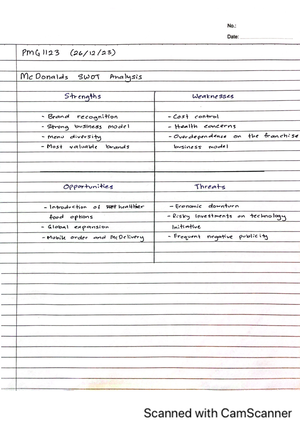 No.:
Date:
PMG1123 (26/12/23)
McDonalds SWOT Analysis
Strengths
- Brand recognition
- Strong business model
- Menu diversity
- Most valuable brands
Weaknesses
- Cost control
- Health concerns
- Overdependence on the franchise
business model
Opportunities
- Introduction of healthier
food options
- Global expansion
- Mobile order and McDelivery
Threats
- Economic downturn
- Risky investments on technology
initiative
- Frequent negative publicity
Scanned with CamScanner